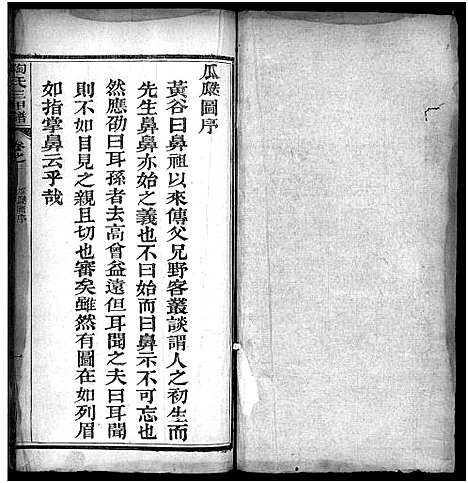 瓜瓞圖序
黃谷曰鼻祖以來傳父兄野客叢談謂人之初生而
先生鼻鼻亦始之義也不曰始而曰鼻示不可忘也
然應劭曰耳孫者去高曾益遠但耳聞之夫曰耳聞
則不如目見之親且切也審矣雖然有圖在如列眉
如指掌鼻云乎哉
陶氏三甲譜
卷之一
瓜瓞圖序